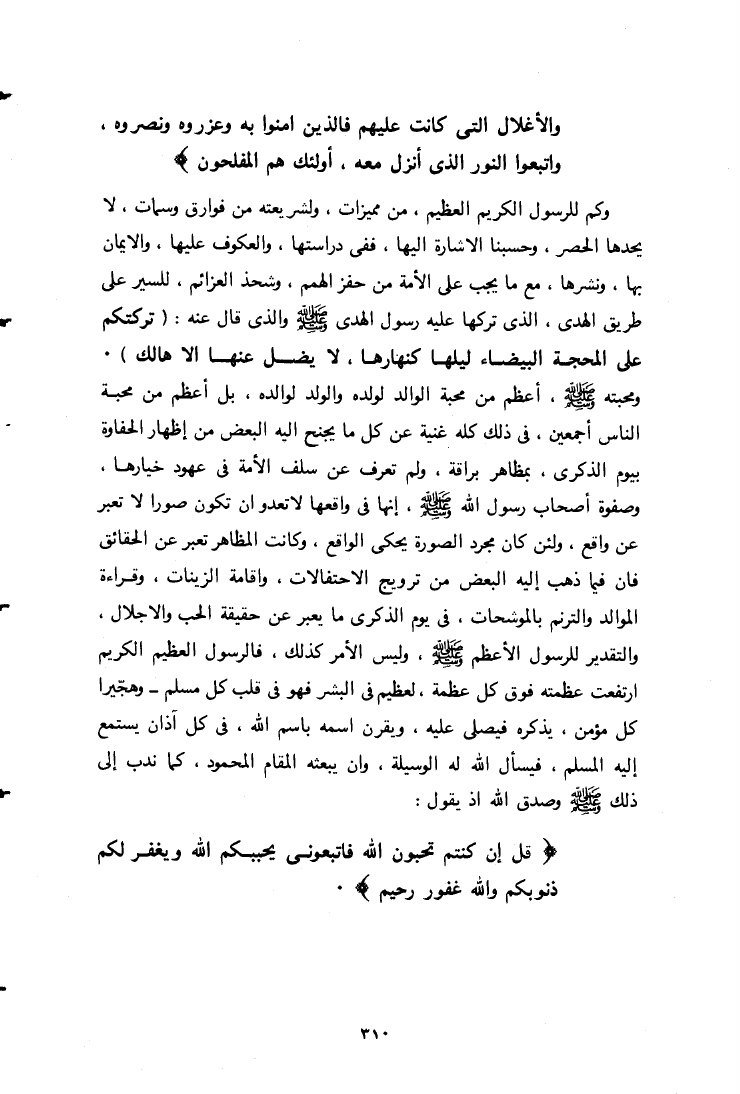 والأغلال التى كانت عليهم فالذين امنوا به وعزروه ونصروه ،
واتبعوا النور الذى أنزل معه ، أولئك هم المفلحون ﴾
وكم للرسول الكريم العظيم ، من مميزات ، ولشريعته من فوارق وسمات ، لا
يحدها الحصر ، وحسبنا الاشارة اليها ، ففى دراستها ، والعكوف عليها ، والايمان
بها ، ونشرها ، مع ما يجب على الأمة من حفز الهمم ، وشحذ العزائم ، للسير على
طريق الهدى ، الذى تركها عليه رسول الهدى ﷺ والذى قال عنه : ( تركتكم
على المحجة البيضاء ليلها كنهارها ، لا يضل عنها الا هالك ) ٠
ومحبته ﷺ ، أعظم من محبة الوالد لولده والولد لوالده ، بل أعظم من محبة
الناس أجمعين ، فى ذلك كله غنية عن كل ما يجنح اليه البعض من إظهار الحفاوة
بيوم الذكرى ، بمظاهر براقة ، ولم تعرف عن سلف الأمة فى عهود خيارها ،
وصفوة أصحاب رسول الله ﷺ ، إنها فى واقعها لاتعدو ان تكون صورا لا تعبر
عن واقع ، ولئن كان مجرد الصورة يحكى الواقع ، وكانت المظاهر تعبر عن الحقائق
فان فيما ذهب إليه البعض من ترويج الاحتفالات ، واقامة الزينات ، وقراءة
الموالد والترنم بالموشحات ، فى يوم الذكرى ما يعبر عن حقيقة الحب والاجلال ،
والتقدير للرسول الأعظم ﷺ ، وليس الأمر كذلك ، فالرسول العظيم الكريم
ارتفعت عظمته فوق كل عظمة ، لعظيم فى البشر فهو فى قلب كل مسلم ــ وهجّيرا
كل مؤمن ، يذكره فيصلى عليه ، ويقرن اسمه باسم الله ، فى كل آذان يستمع
إليه المسلم ، فيسأل الله له الوسيلة ، وان يبعثه المقام المحمود ، كما ندب إلى
ذلك ﷺ وصدق الله اذ يقول :
﴿ قل إن كنتم تحبون الله فاتبعونى يحببكم الله ويغفر لكم
ذنوبكم والله غفور رحيم ﴾ ٠
٣١٠